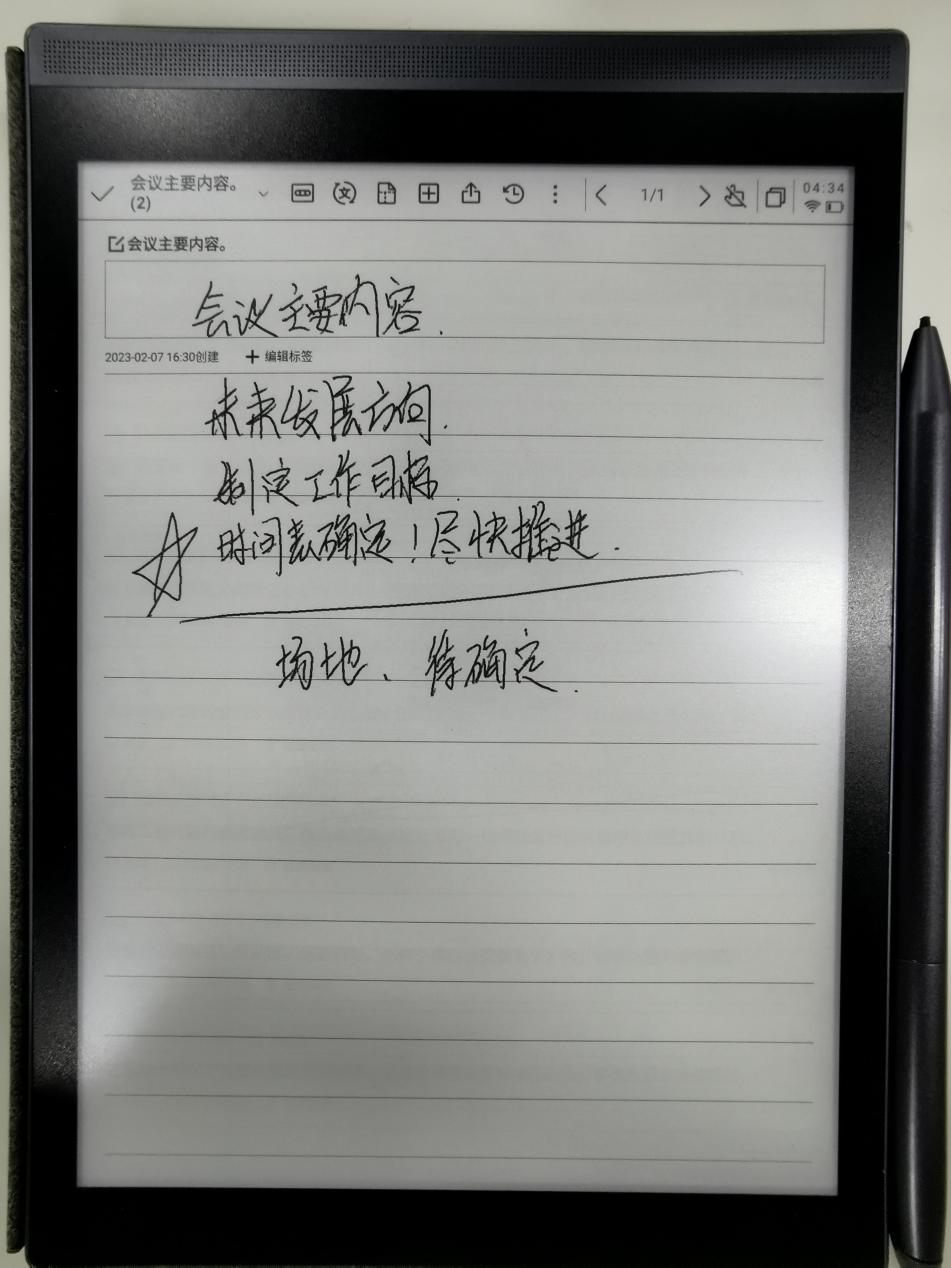 会议主要内容。
(2)
1/1
04:34
会议主要内容。
会议主要内容.
2023-02-07 16:30创建 + 编辑标签
未来发展方向.
制定工作目标.
时间表确定！尽快推进.
场地、待确定.